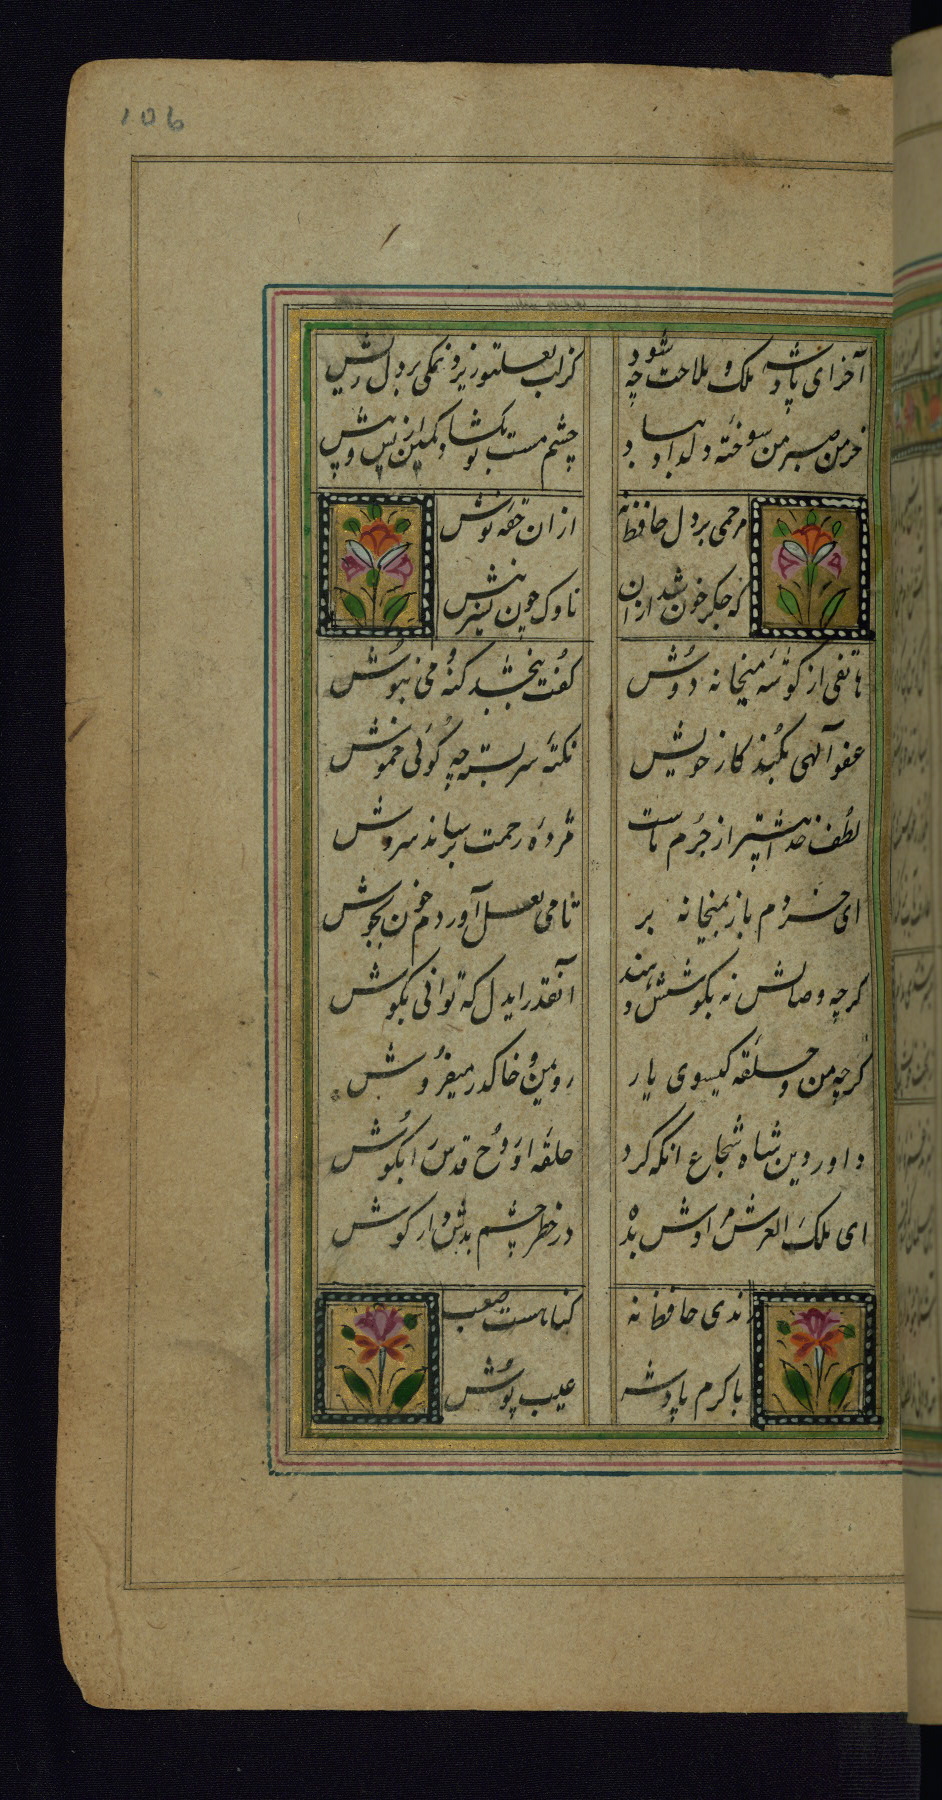 106
آخر ای پادشه ملک و ملاحت چه شود
کز لب لعلتو ریزد نمکی بر دل ریش
خرمن صبر من سوخته دل داد بباد
چشم مست تو بکشا و کمین از پس و پیش
مرحمی بر دل حافظ نه
از ان حقه نوش
که جکر خون شد از ان
ناوک چون نیشترش
هاتفی از کوشه میخانه دوش
کفت ببخشد کنه می بنوش
عفو آلهی بکند کار خویش
نکته سربسته چه کوئی خموش
لطف خدا بیشتر از جرم ماست
مژده رحمت برساند سروش
ای خردم باز بمیخانه بر
تا می لعل آوردم خون بجوش
کرچه وصالش نه بکوشش دهند
آنقدر ایدل که توانی بکوش
کرچه من و حلقه کیسوی یار
روی من و خاک در میفروش
داور دین شاه شجاع انکه کرد
حلقه او روح قدس را بکوش
ای ملک العرش مرادش بده
در خطر چشم بدش دار کوش
رندی حافظ نه
کناهست صعب
با کرم پادشه
عیب پوش